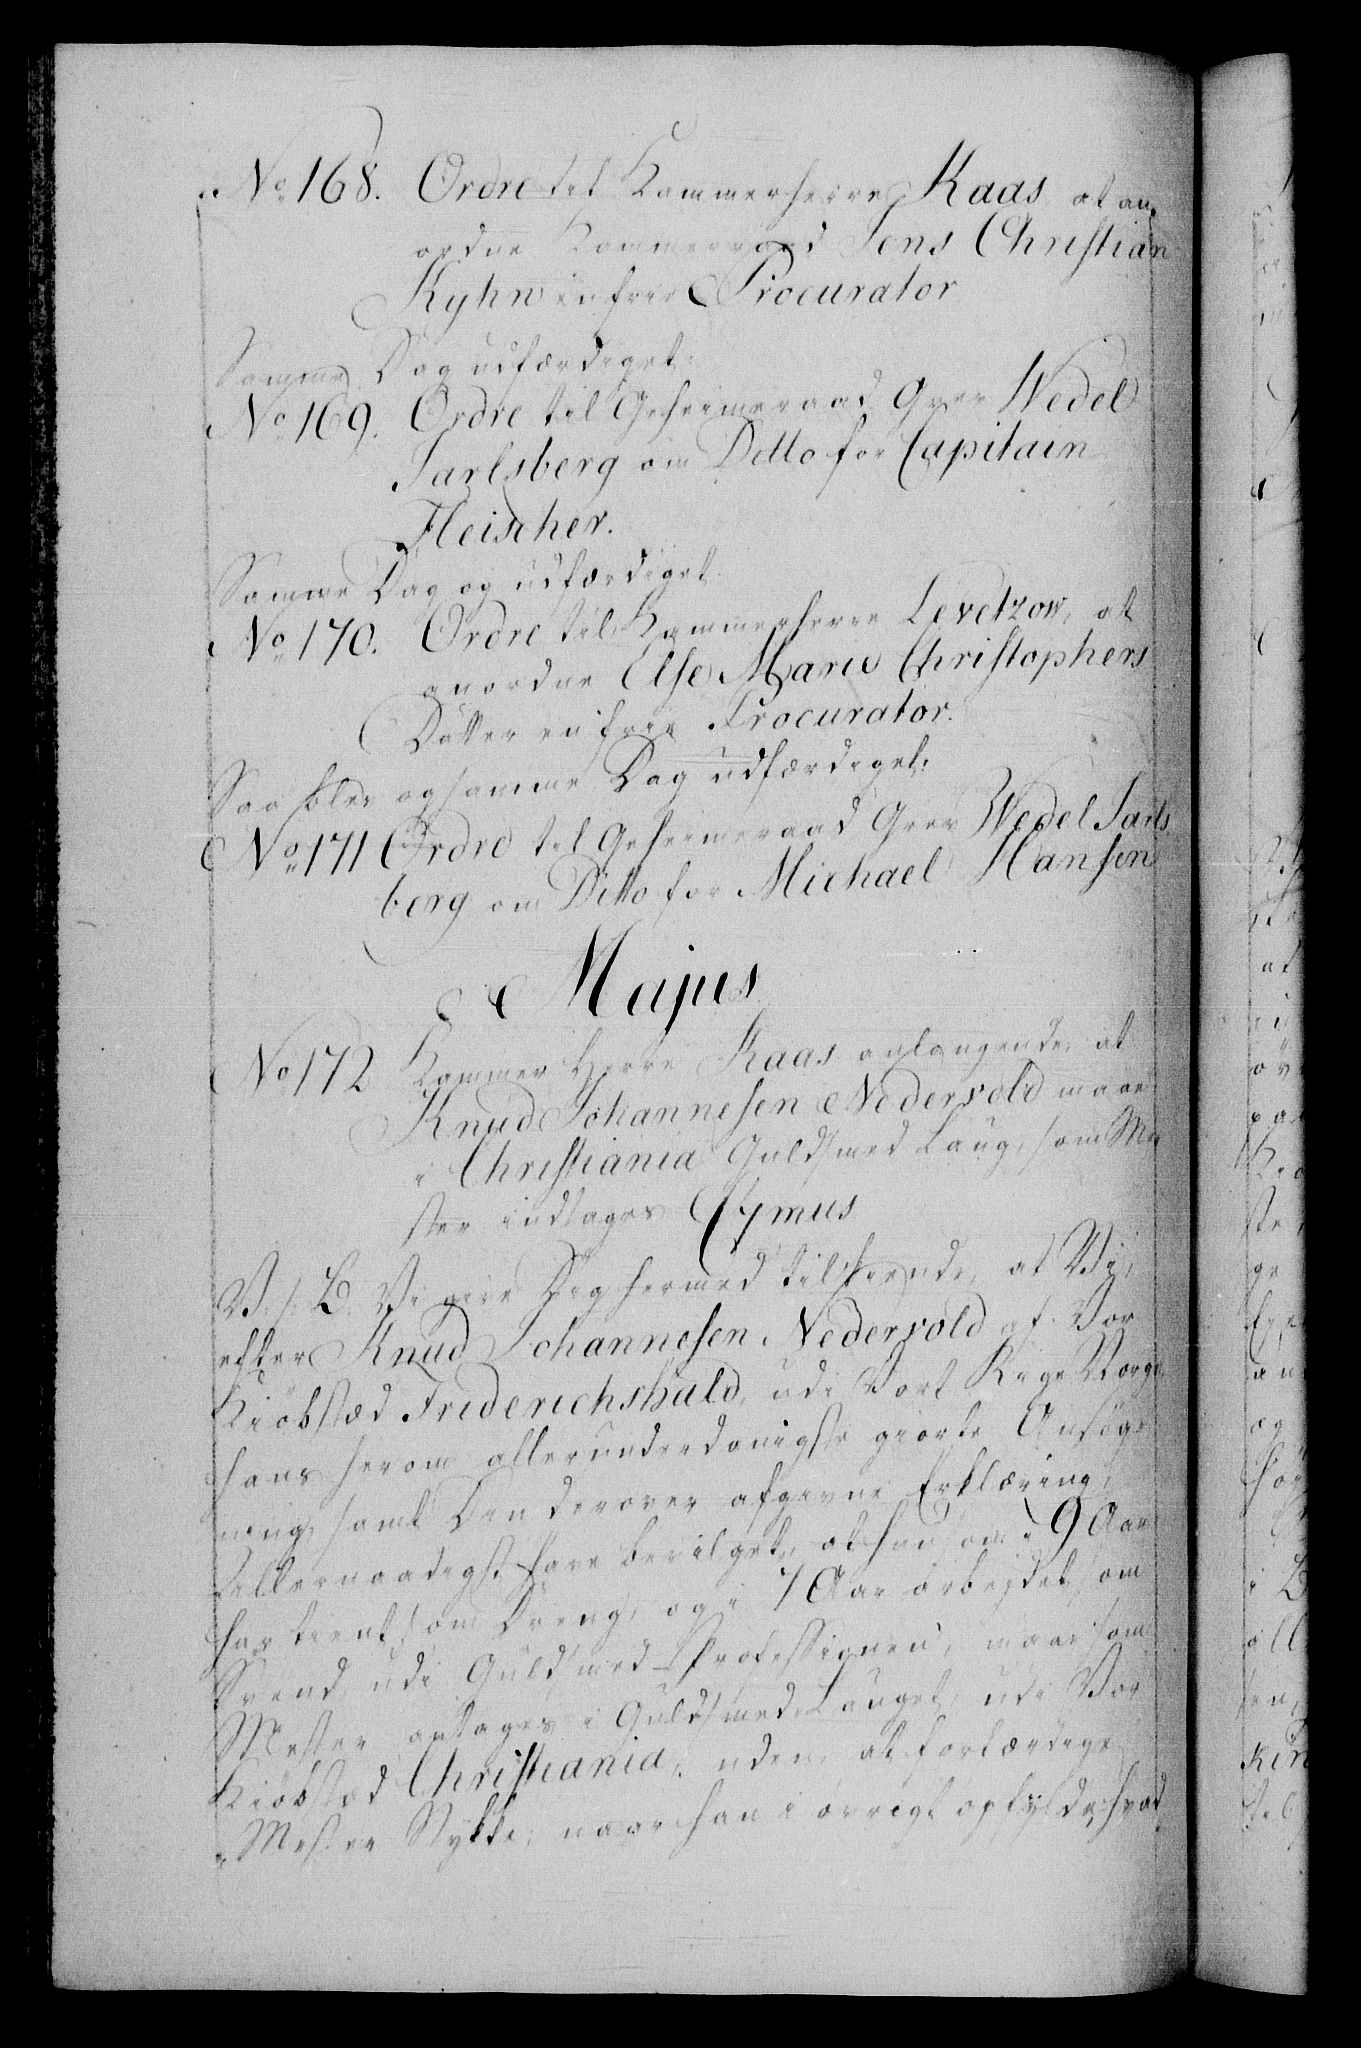 No 168. Ordre til Kammerherre Kaas at an-
ordne Kammerraad Jens Christian
Kyhn en frie Procurator
Samme Dag udfærdiget.
No 169. Ordre til Geheimeraad Grev Wedel
Jarlsberg om Ditto for Capitain
Fleischer.
Samme Dag og udfærdiget
No 170. Ordre til Kammerherre Levetzow, at
anordne Else Marie Christophers
Datter en frie Procurator.
Saa følev og samme Dag udfærdiget.
No 171 Ordre til Geheimeraad Grev Wedel Jarls
berg om Ditto for Michael Hansen
Majus
No 172 Kammer Herre Kaas anlangende, at
Knud Johannesen Nedervold maae
i Christiania Guldsmed Laug, som Me
ster indtages
V. s: G. Vi give Dig hermed tilkiende, at Vi,
efter Knud Johannesen Nedervold af Vor
Kiöbstæd Friderichshald, udi Vort Rige Norge,
hans herom allerunderdanigste giorte Ansøg
ning, samt Den derover afgivne Erklæring,
Allernaadigst have bevilget, at han som i 9 Aar
har tient som Dreng, og i 7 Aar arbejdet som
Svend, udi Guldsmed-Professionen, maae som
Mester antages i Guldsmed-Lauget, udi Vor
Kiöbstæd Christiania, uden at forfærdige
Mester Stykke, naar han i övrigt opfylder, hvad